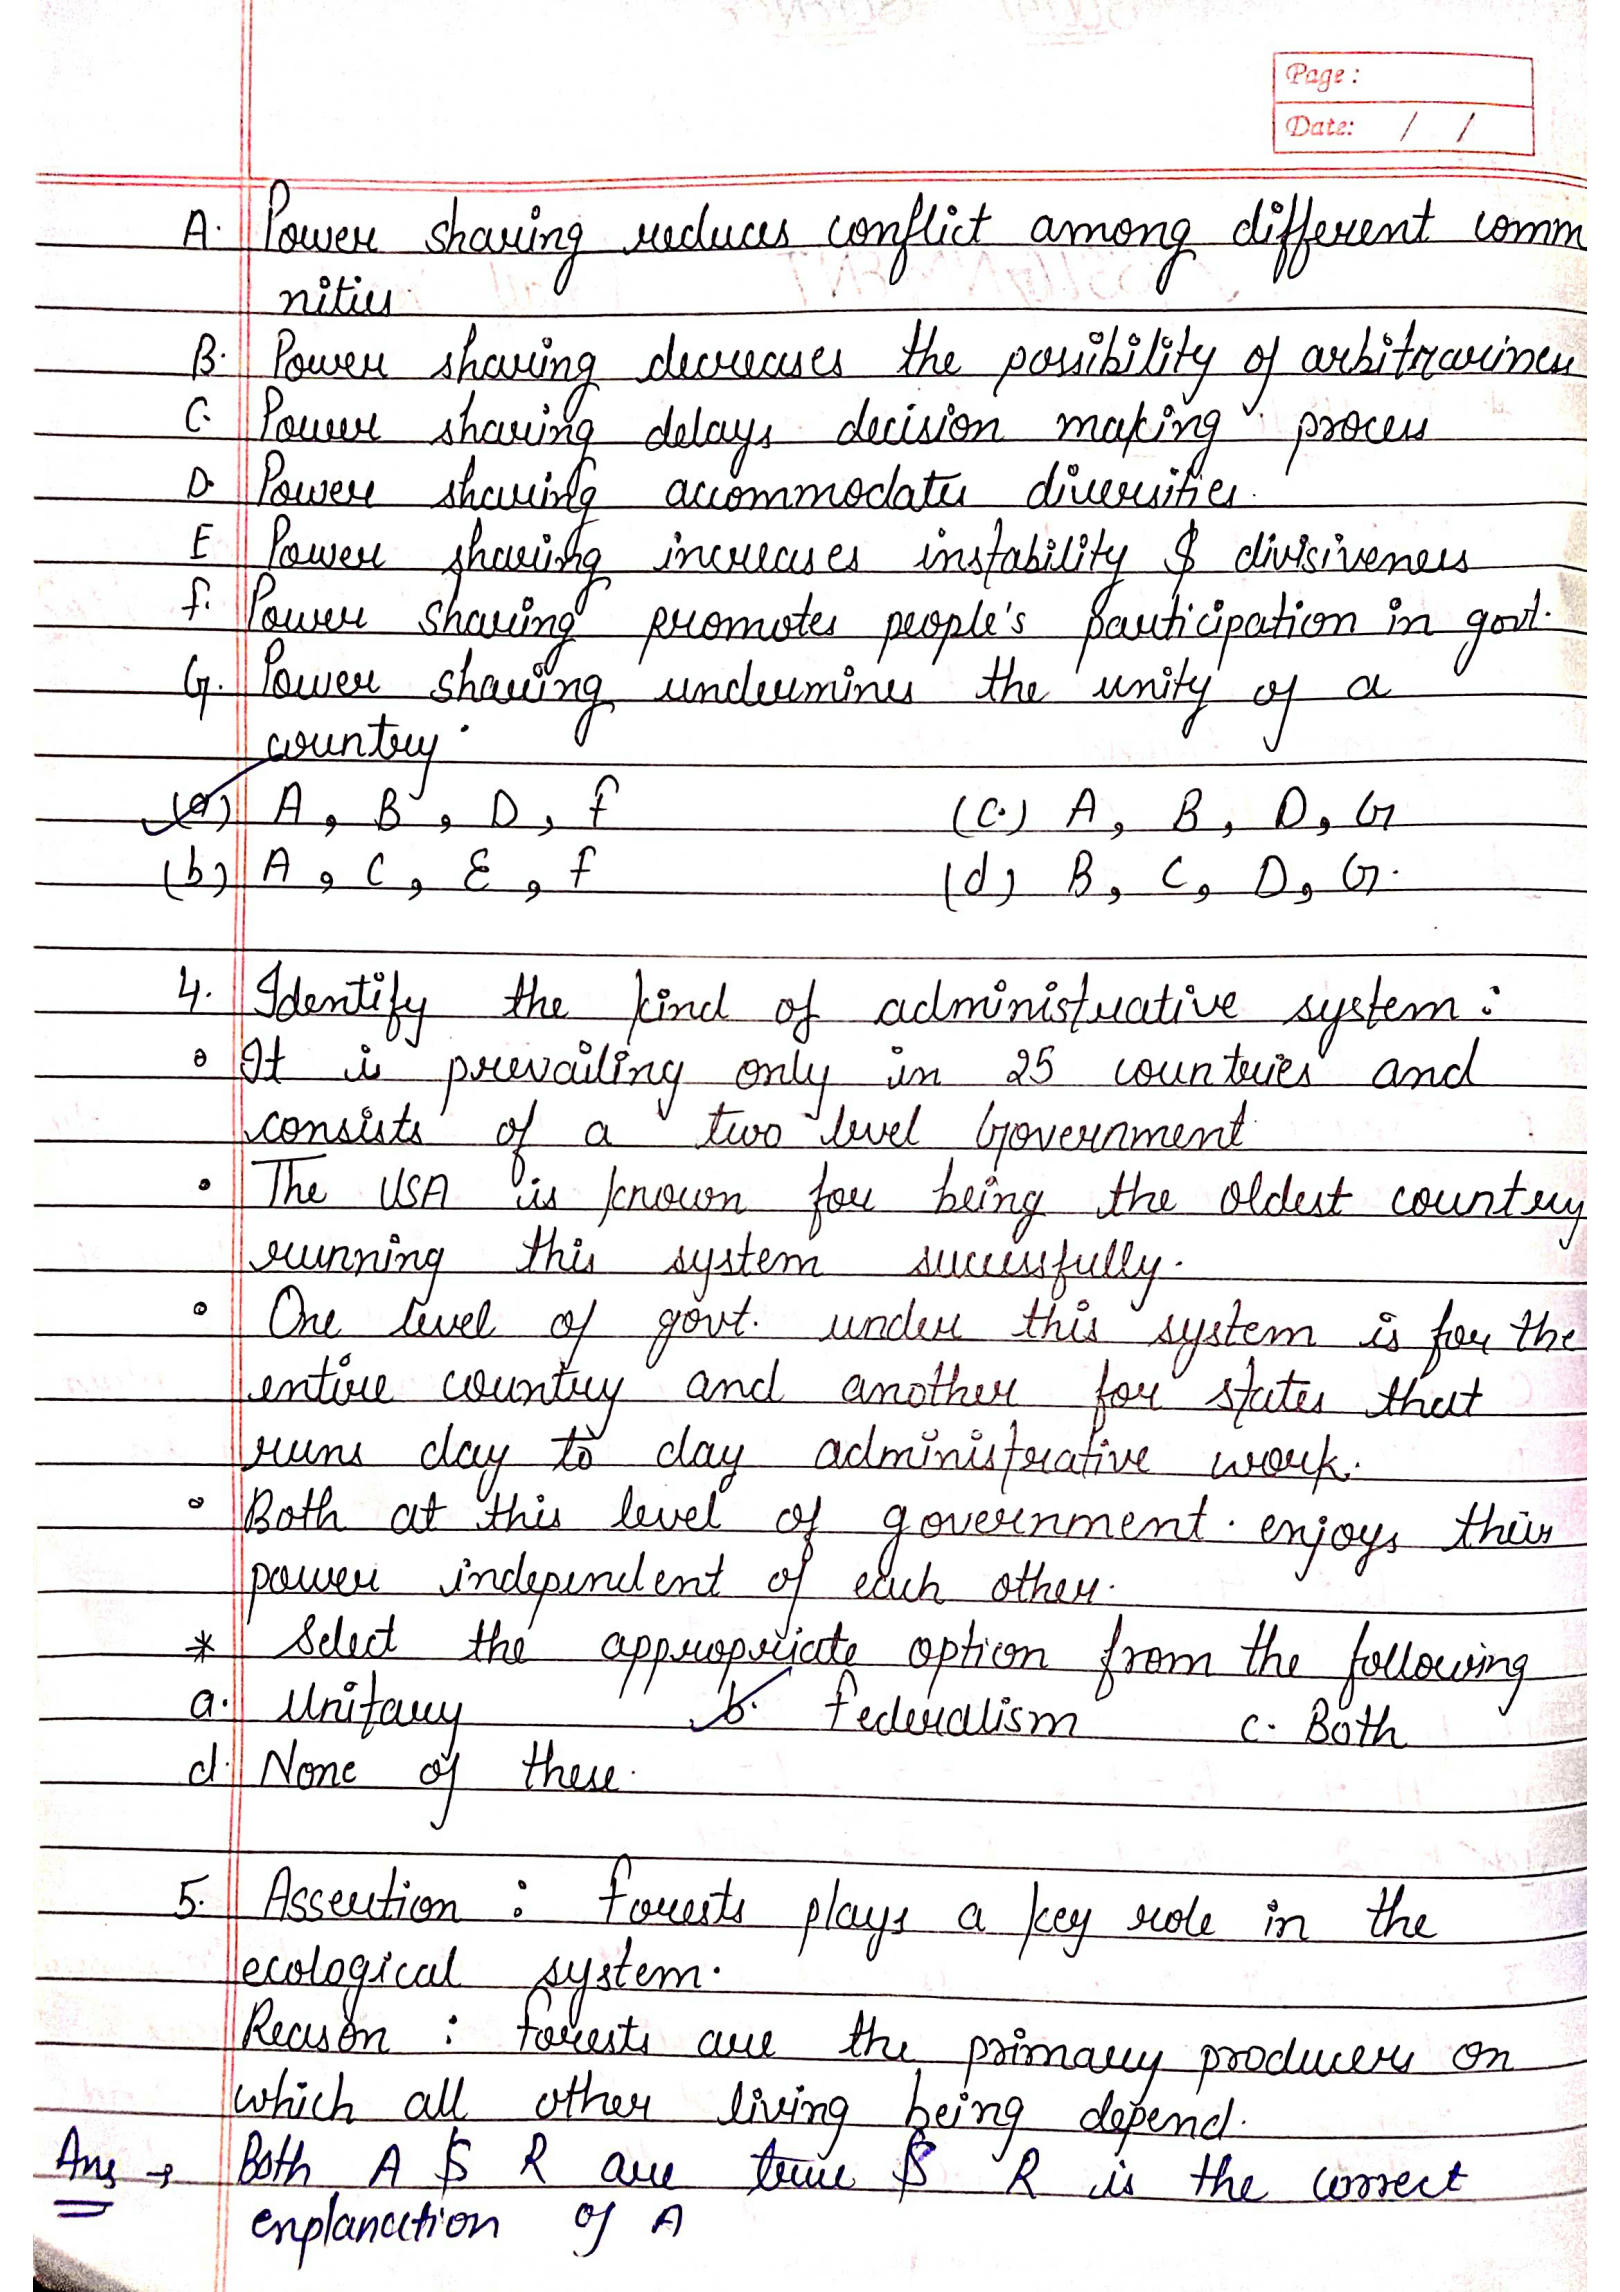 Page :
Date: / /
A. Power sharing reduces conflict among different comm
nities
B. Power sharing decreases the possibility of arbitrariness
C. Power sharing delays decision making process
D. Power sharing accommodates diversities.
E Power sharing increases instability & divisiveness
f. Power sharing promotes people's participation in govt.
G. Power sharing undermines the unity of a
country.
(a) A, B, D, f (c.) A, B, D, G
(b) A, C, E, f (d) B, C, D, G.
4. Identify the kind of administrative system :
It is prevailing only in 25 countries and
consists of a two level Government
• The USA is known for being the oldest country
running this system successfully.
• One level of govt. under this system is for the
entire country and another for states that
runs day to day administrative work.
• Both at this level of government. enjoys their
power independent of each other.
* Select the appropriate option from the following
a. Unitary b. federalism c. Both
d. None of these.
5. Assertion : forests plays a key role in the
ecological system.
Reason : forests are the primary producers on
which all other living being depend.
Ans → Both A & R are true & R is the correct
enplanation of A